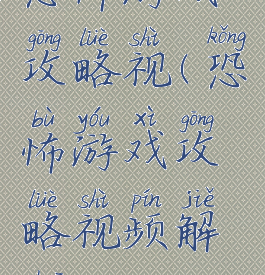 gōng lüè shì kǒng
攻略视(恐
bù yóu xì gōng
怖游戏攻
lüè shì pín jiě
略视频解